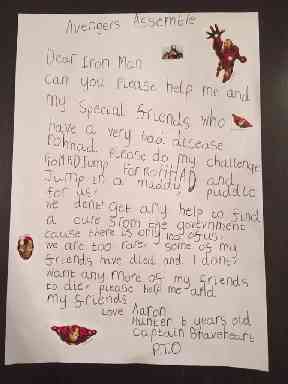 Avengers Assemble
Dear Iron Man
Can you please help me and
my special friends who
have a very bad disease
Rohhad Please do my challenge
JUMP FOR ROHHAD and
Jump in a muddy puddle
for us!
we dont get any help to find
a cure from the government
cause there is only 100 of us
we are too rare. some of my
friends have died and I dont
want any more of my friends
to die. please help me and
my friends
Love Aaron
Hunter 6 years old
Captain Braveheart
P.T.O